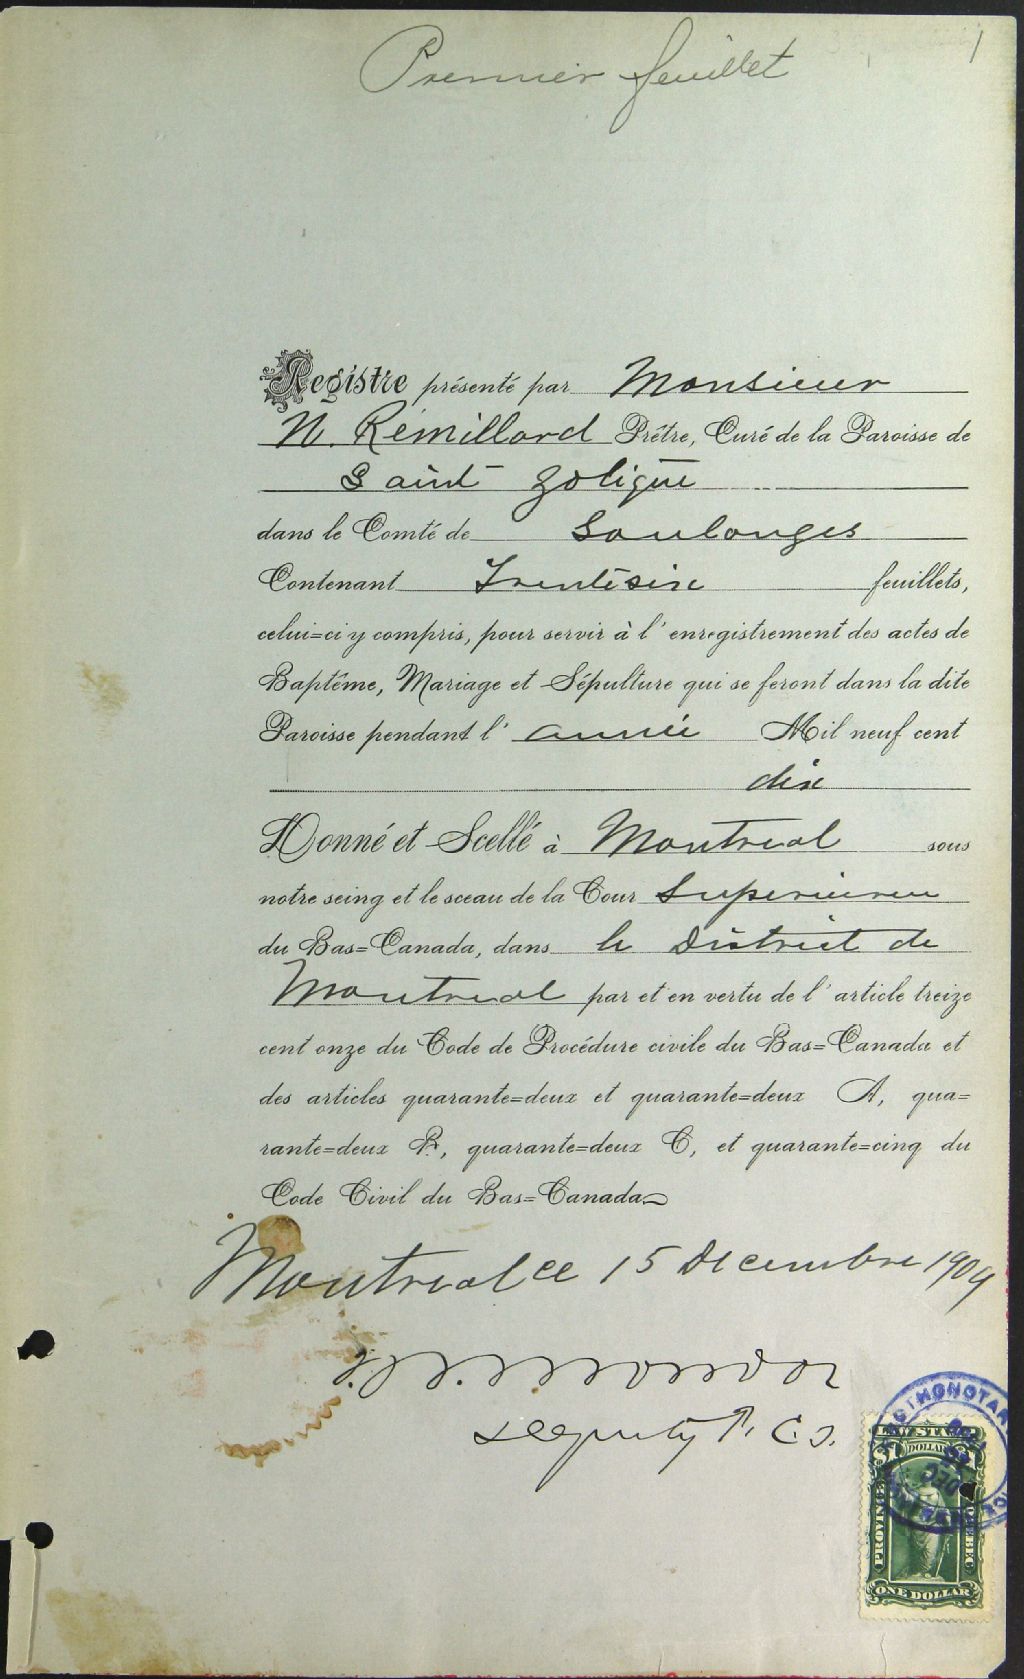 1
Premier feuillet
Registre présenté par Monsieur
N. Rémillard Prêtre, Curé de la Paroisse de
Saint Zotique
dans le Comté de Soulanges
Contenant Trentesix feuillets,
celui=ci y compris, pour servir à l'enregistrement des actes de
Baptême, Mariage et Sépulture qui se feront dans la dite
Paroisse pendant l'année Mil neuf cent
dix
Donné et Scellé à Montreal sous
notre seing et le sceau de la Cour Superieure
du Bas=Canada, dans le District de
Montreal par et en vertu de l'article treize
cent onze du Code de Procédure civile du Bas=Canada et
des articles quarante=deux et quarante=deux A, qua=
rante=deux B, quarante=deux C, et quarante=cinq du
Code Civil du Bas=Canada
Montreal ce 15 Decembre 1909
Deputy P. C. S.
LAW STAMP
DOLLAR
PROVINCE
QUEBEC
ONE DOLLAR
DEC